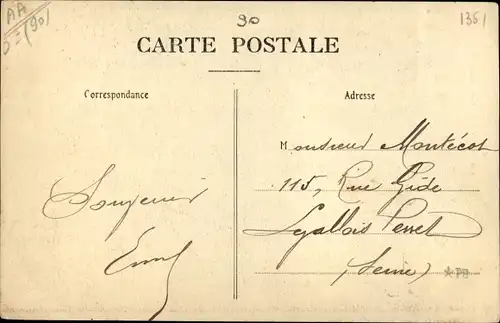 AA
D=(90)
90
1361
CARTE POSTALE
Correspondance
Adresse
Souvenir
Monsieur Montécot
115, Rue Gide
Levallois Perret
(Seine)